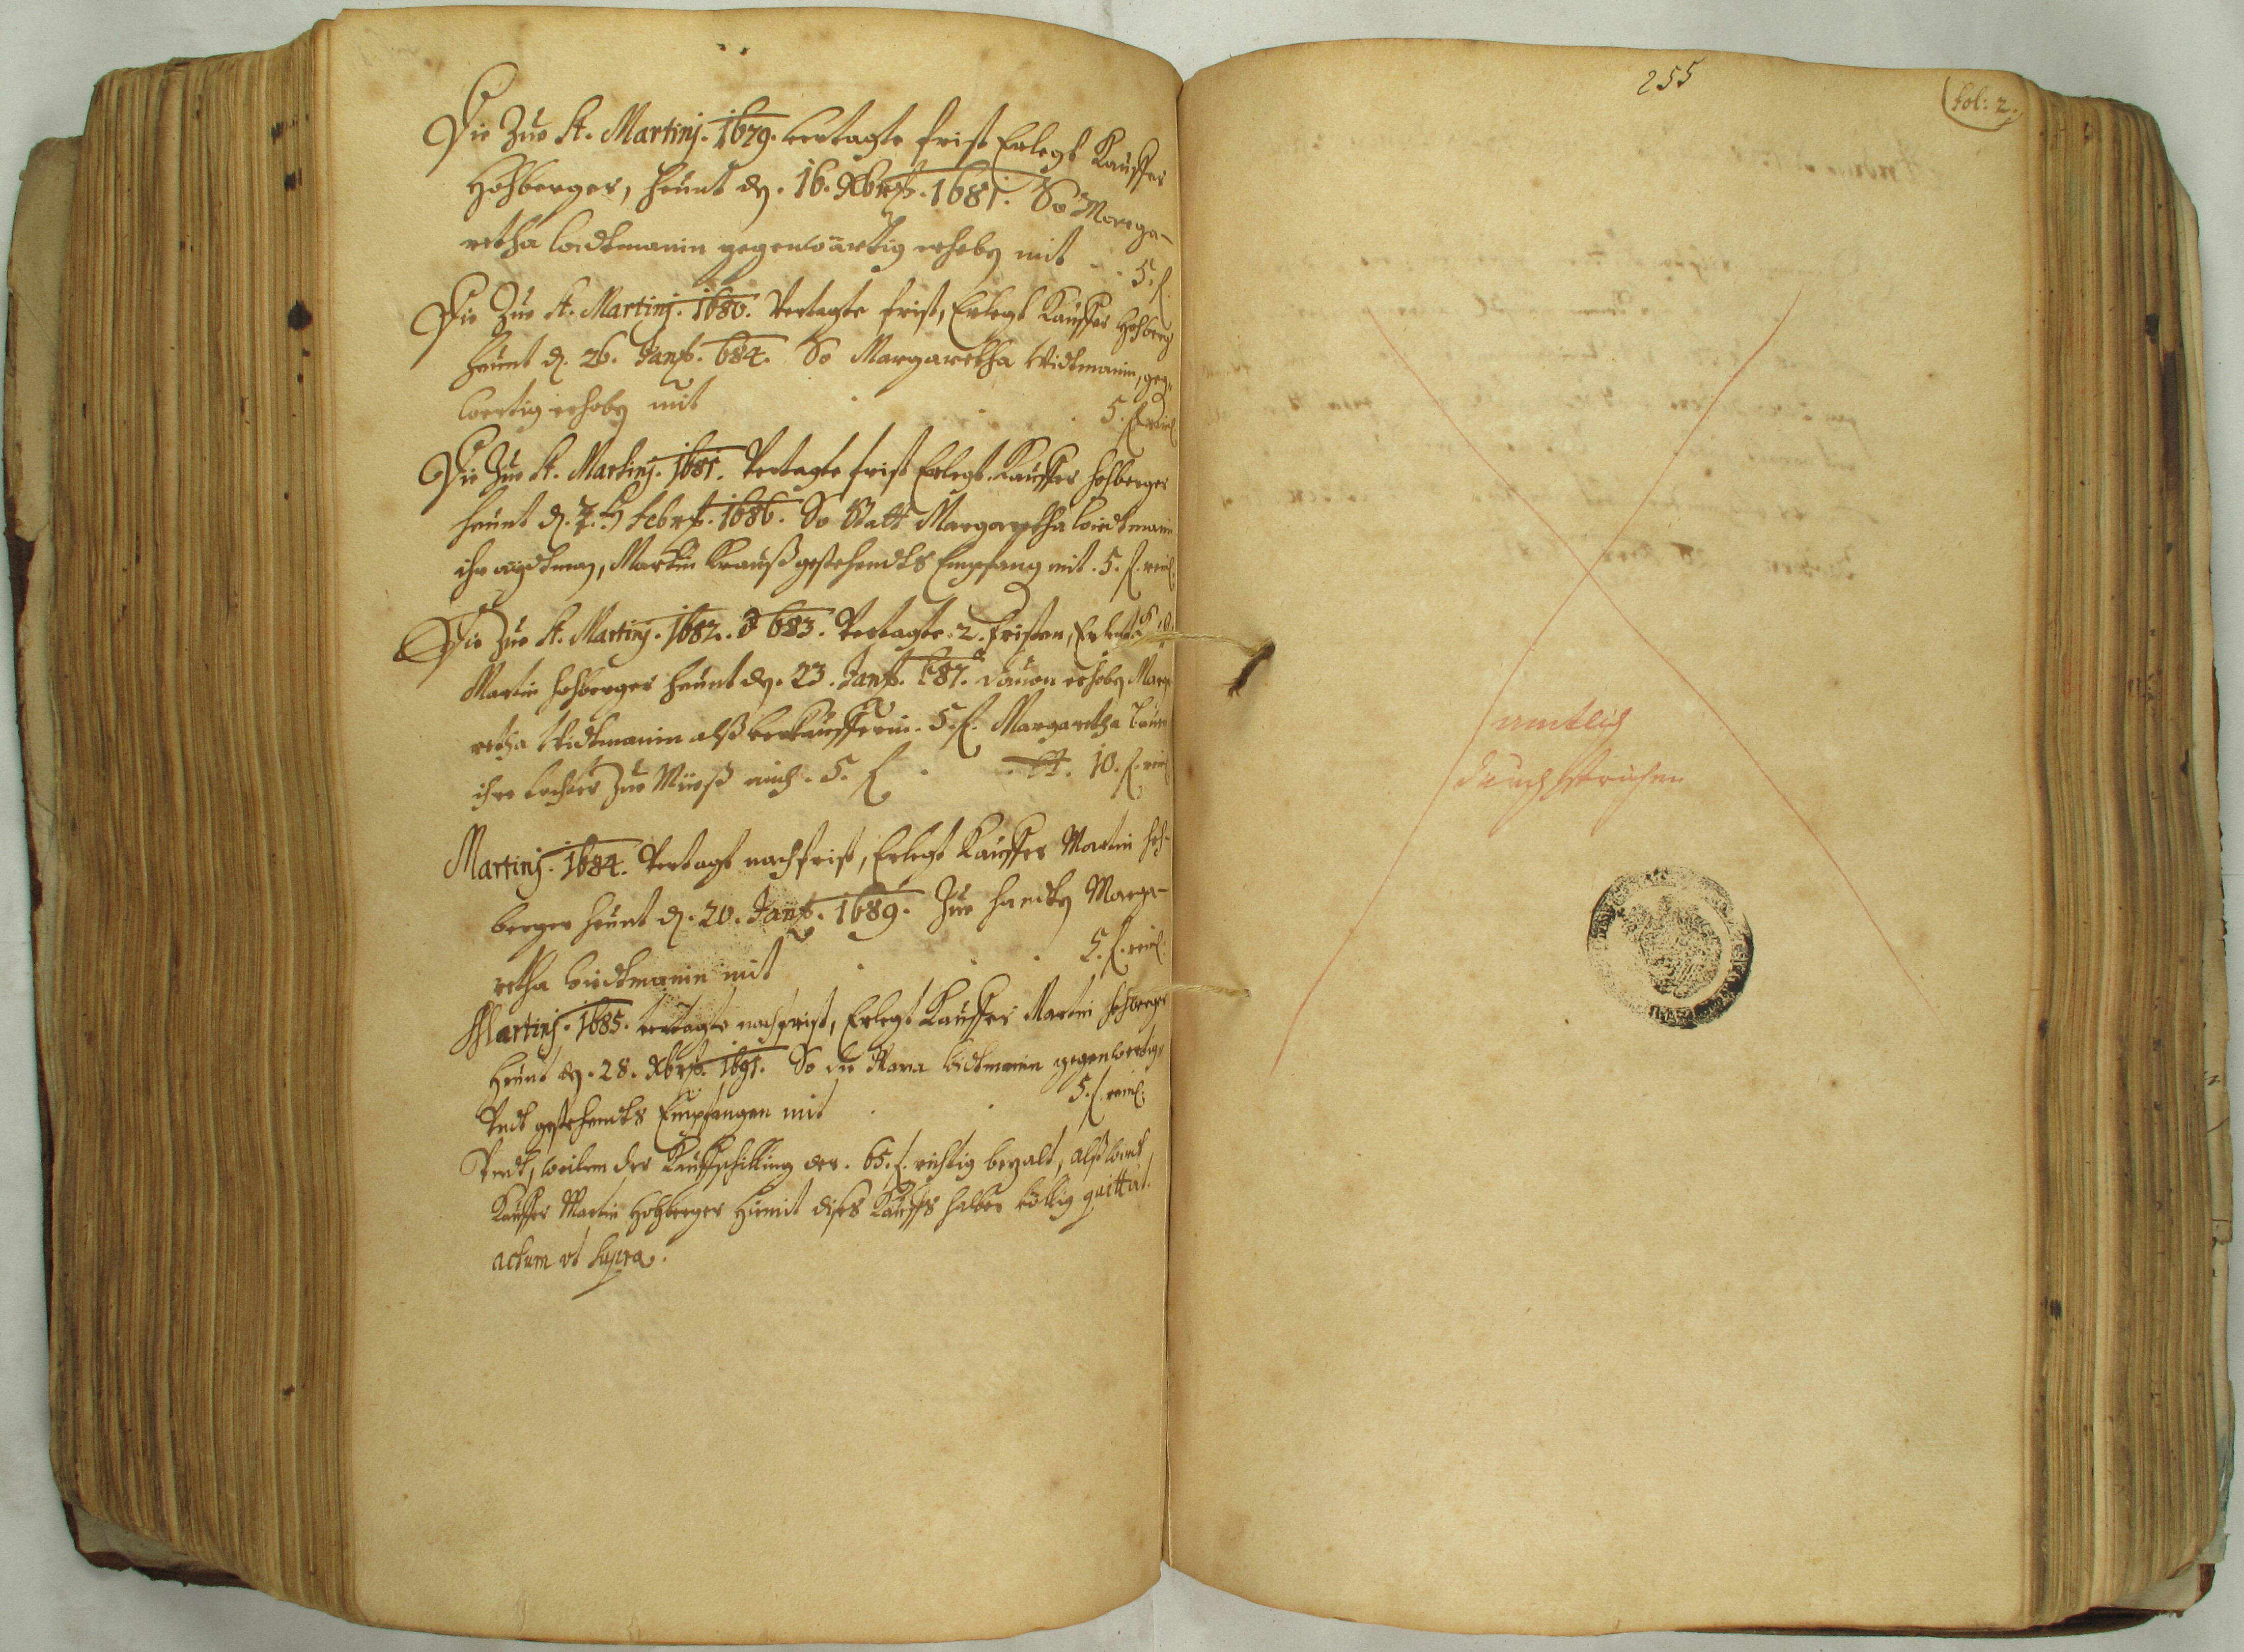 Die Zue St. Martinj. 1679. vertagte frist Erlegt Kauffer
Hohberger, heunt dz. 16. Xbris. 1681. So Marga-
retha Widtmanin gegenwärtig erhebt mit . . 5. f.
Die Zue St. Martinj. 1680. Vertagte frist, Erlegt Kauffer Hohberg
heunt d. 26. Janr. 684. So Margaretha Widtmanin, geg-
wertig erhebt mit . . . 5. f. rein.
Die Zue St. Martinj. 1681. Vertagte frist Erlegt Kauffer Hohberger
heunt d. Febr. 1686. So Statt Margaretha Widtmanin
ihr aydtman, Martin Krauß gestehendts Empfang mit. 5. f. rein.
Die Zue St. Martinj. 1682. & 683. Vertagte 2. fristen, Erlegt
Martin Hohberger heunt dz. 23. Janr. 687. dauon erhebt Marga
retha Widtmanin alß verkaufferin. 5. f. Margaretha
ihr tochter Zue auch. 5. f. . . 10. f. rein.
Martinj. 1684. Vertagt nachfrist, Erlegt Kauffer Martin Hoh-
berger heunt d. 20. Janr. 1689. Zue handen Marga-
retha Widtmanin mit . . . 5. f. rein.
Martinj. 1685. vertagte nachfrist, Erlegt Kauffer Martin Hohberger
Heunt dz. 28. Xbris. 1691. So die Widtmanin gegenwertig
Vndt gestehendts Empfangen mit . . 5. f. rein.
Vndt, weilen der Kauffschilling der. 65. f. richtig bezalt, alß wirdt
Kauffer Martin Hohberger Hiemit dises Kauffs halber völlig quittirt.
actum vt supra.
255
fol: 2.
amtlich
durchstrichen